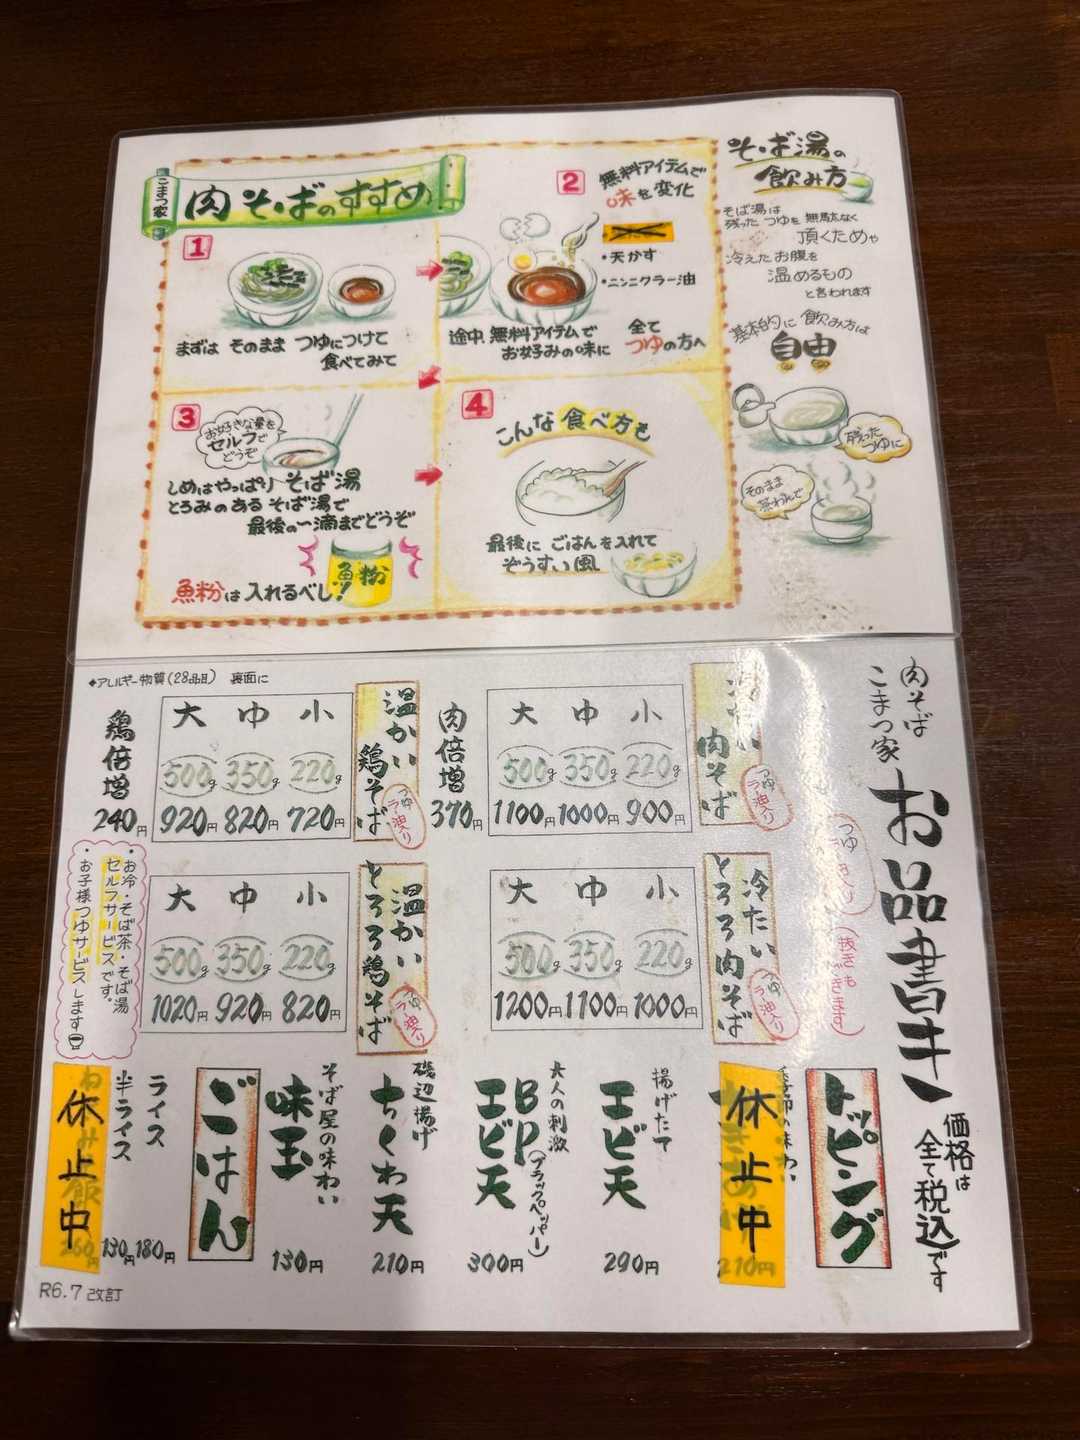 こまつ家
肉そばのすすめ
1
まずは そのまま つゆにつけて
食べてみて
2
無料アイテムで
味を変化
・天かす
・ニンニクラー油
途中、無料アイテムで
お好みの味に
全て
つゆの方へ
3
お好きな量を
セルフで
どうぞ
しめはやっぱり そば湯
とろみのある そば湯で
最後の一滴までどうぞ
魚粉
魚粉は入れるべし!
4
こんな食べ方も
最後に ごはんを入れて
ぞうすい風
そば湯の
飲み方
そば湯は
残ったつゆを 無駄なく
頂くためや
冷えたお腹を
温めるもの
と言われます
基本的に 飲み方は
自由
残った
つゆに
そのまま
茶わんで
肉そば
こまつ家
お品書き
価格は
全て税込です
肉そば
つゆ
ラー油入り
小 中 大
220g 350g 500g
900円 1000円 1100円
肉倍増
370円
温かい
鶏そば
つゆ
ラー油入り
小 中 大
220g 350g 500g
720円 820円 920円
鶏倍増
240円
◆アレルギー物質(28品目) 裏面に
冷たい
とろろ肉そば
つゆ
ラー油入り
小 中 大
220g 350g 500g
1000円 1100円 1200円
温かい
とろろ鶏そば
つゆ
ラー油入り
小 中 大
220g 350g 500g
820円 920円 1020円
・お冷・そば茶・そば湯
セルフサービスです。
・お子様つゆサービスします
トッピング
季節の味わい
休止中
210円
揚げたて
エビ天
290円
大人の刺激
BP(ブラックペッパー)
エビ天
300円
磯辺揚げ
ちくわ天
210円
そば屋の味わい
味玉
130円
ごはん
ライス
180円
半ライス
130円
休止中
260円
R6.7 改訂